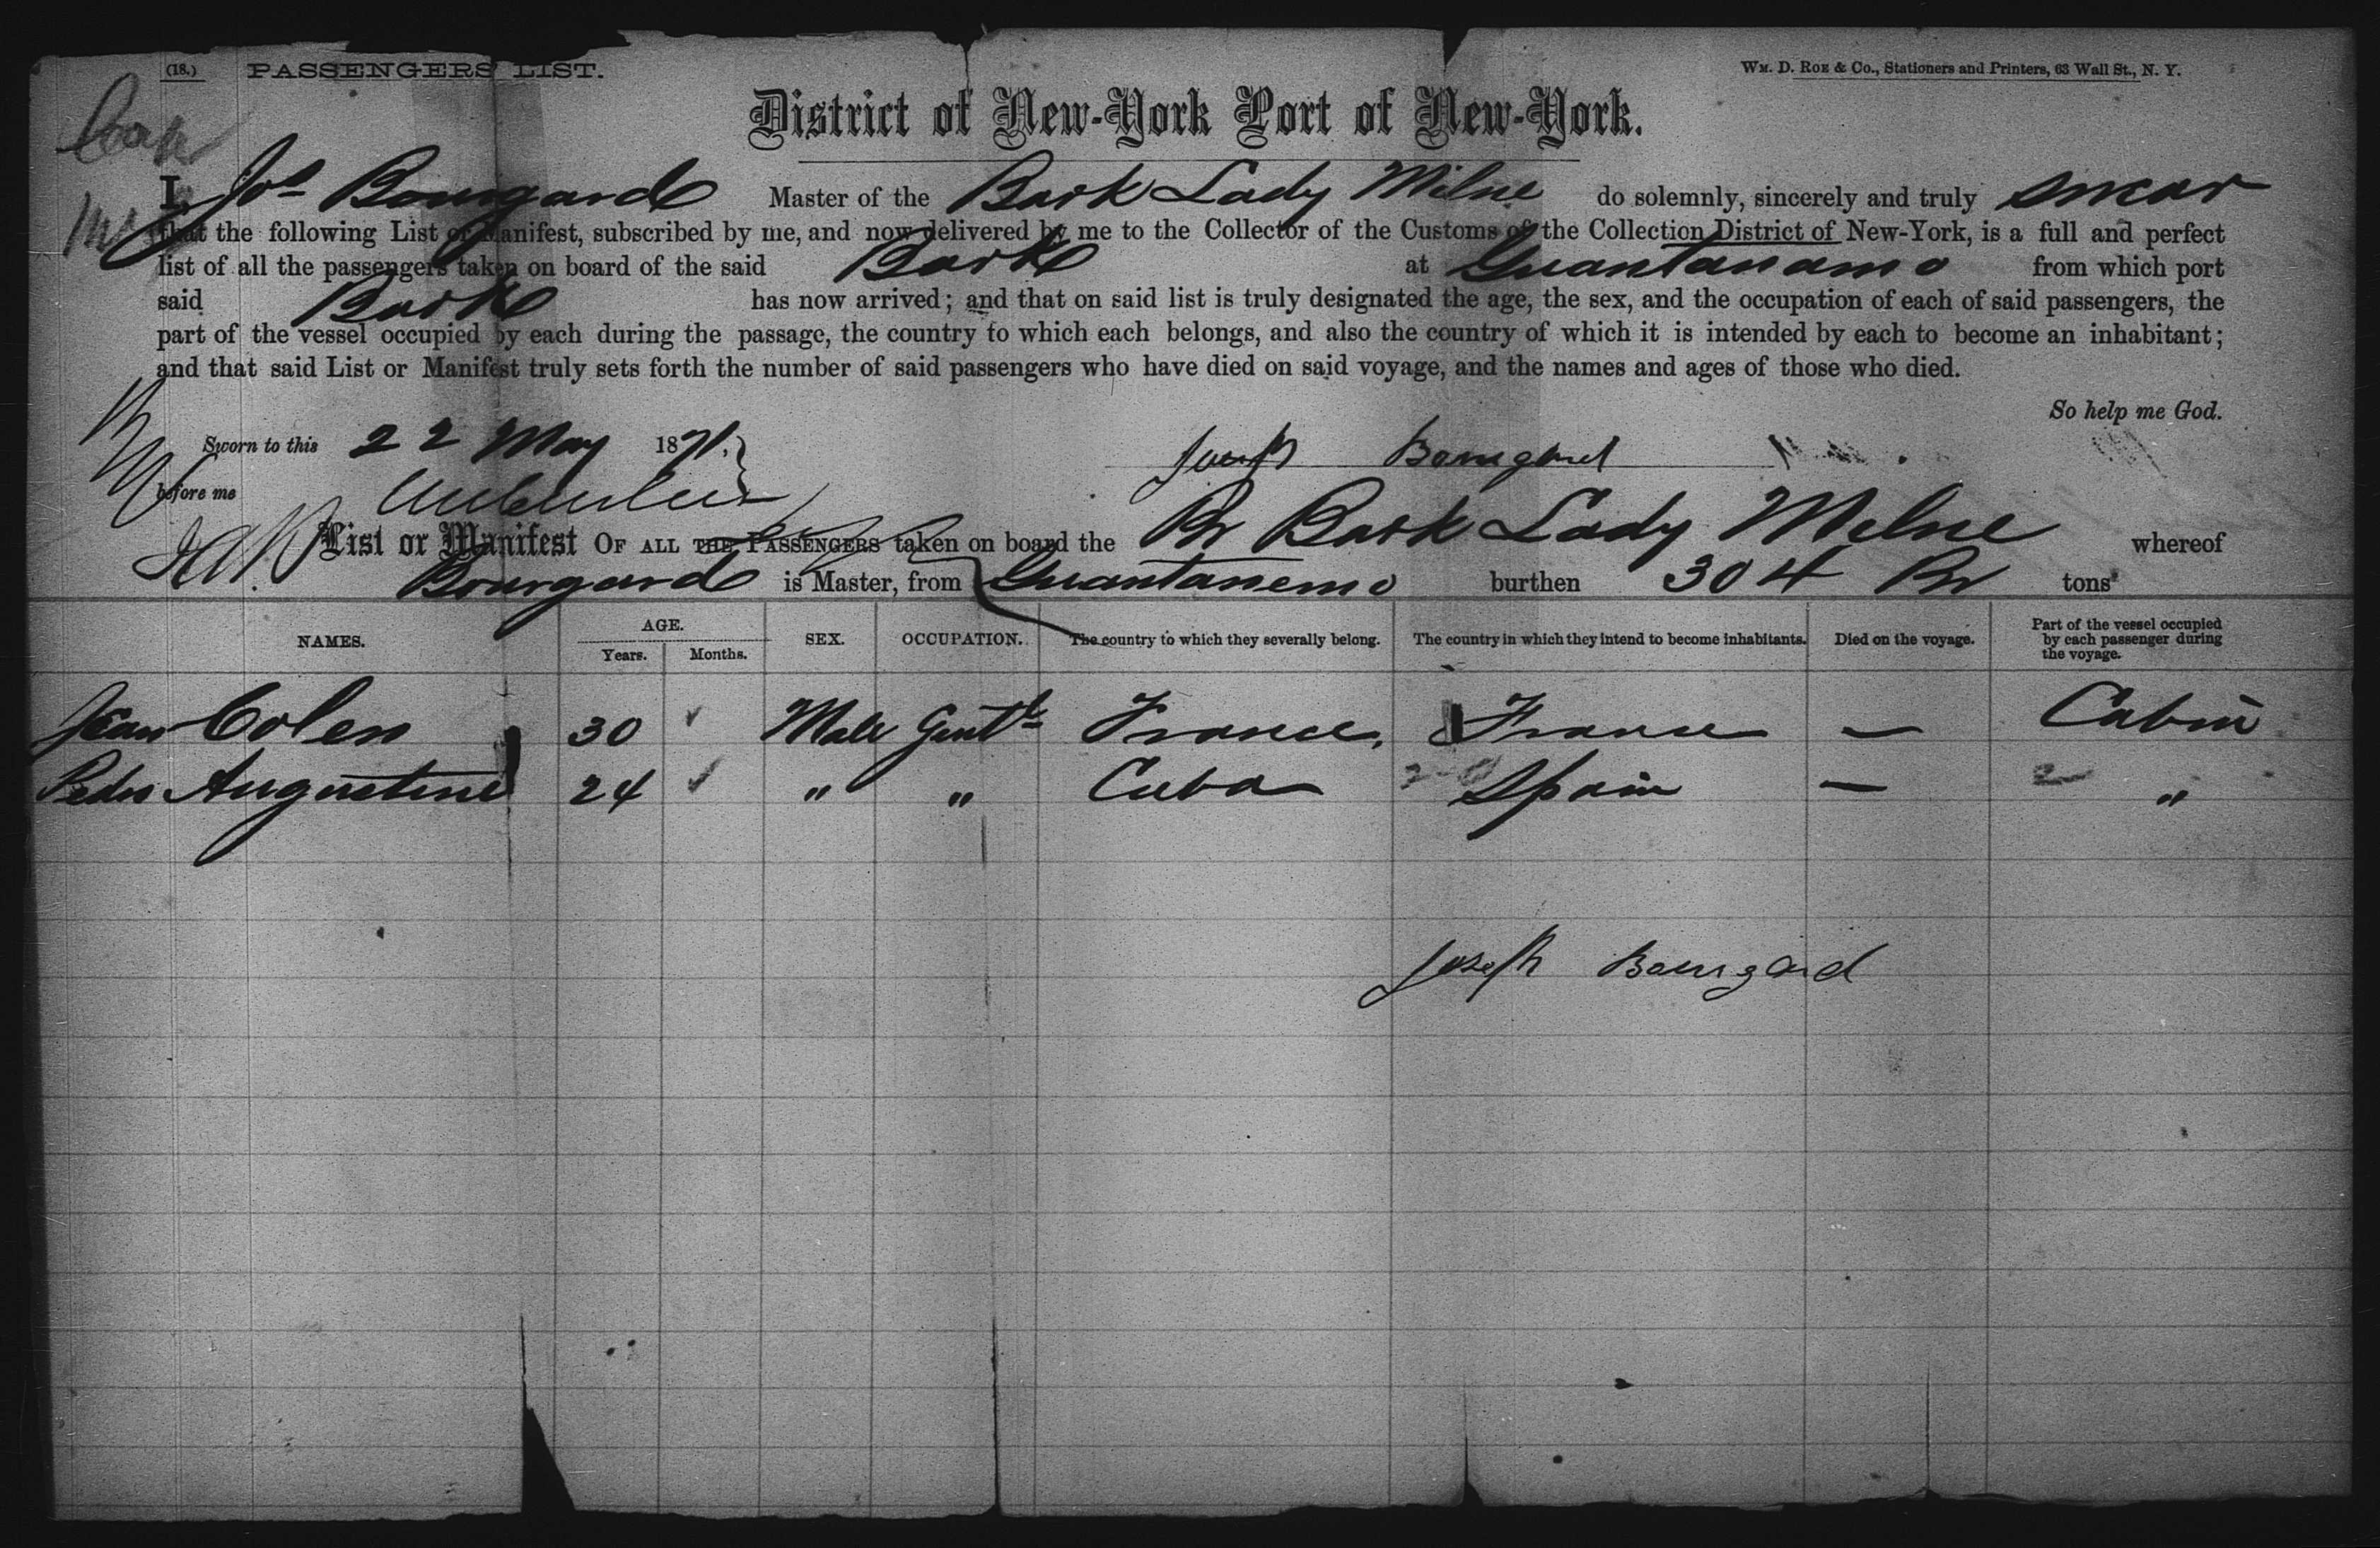 (18.) PASSENGERS LIST.
WM. D. ROE & CO., Stationers and Printers, 63 Wall St., N. Y.
District of New-York Port of New-York.
I, Jos Bourgard Master of the Bark Lady Milne do solemnly, sincerely and truly swear
that the following List or Manifest, subscribed by me, and now delivered by me to the Collector of the Customs of the Collection District of New-York, is a full and perfect
list of all the passengers taken on board of the said Bark at Guantanamo from which port
said Bark has now arrived; and that on said list is truly designated the age, the sex, and the occupation of each of said passengers, the
part of the vessel occupied by each during the passage, the country to which each belongs, and also the country of which it is intended by each to become an inhabitant;
and that said List or Manifest truly sets forth the number of said passengers who have died on said voyage, and the names and ages of those who died.
So help me God.
Sworn to this 22 May 1871. Joseph Bourgard
before me
List or Manifest OF ALL THE PASSENGERS taken on board the Br Bark Lady Milne whereof
Bourgard is Master, from Guantanemo burthen 304 Br tons
NAMES. AGE. Years. Months. SEX. OCCUPATION. The country to which they severally belong. The country in which they intend to become inhabitants. Died on the voyage. Part of the vessel occupied by each passenger during the voyage.
Jean Colen 30 Male Gentle France. France — Cabin
Pedro Augustine 24 " " Cuba Spain — "
Joseph Bourgard